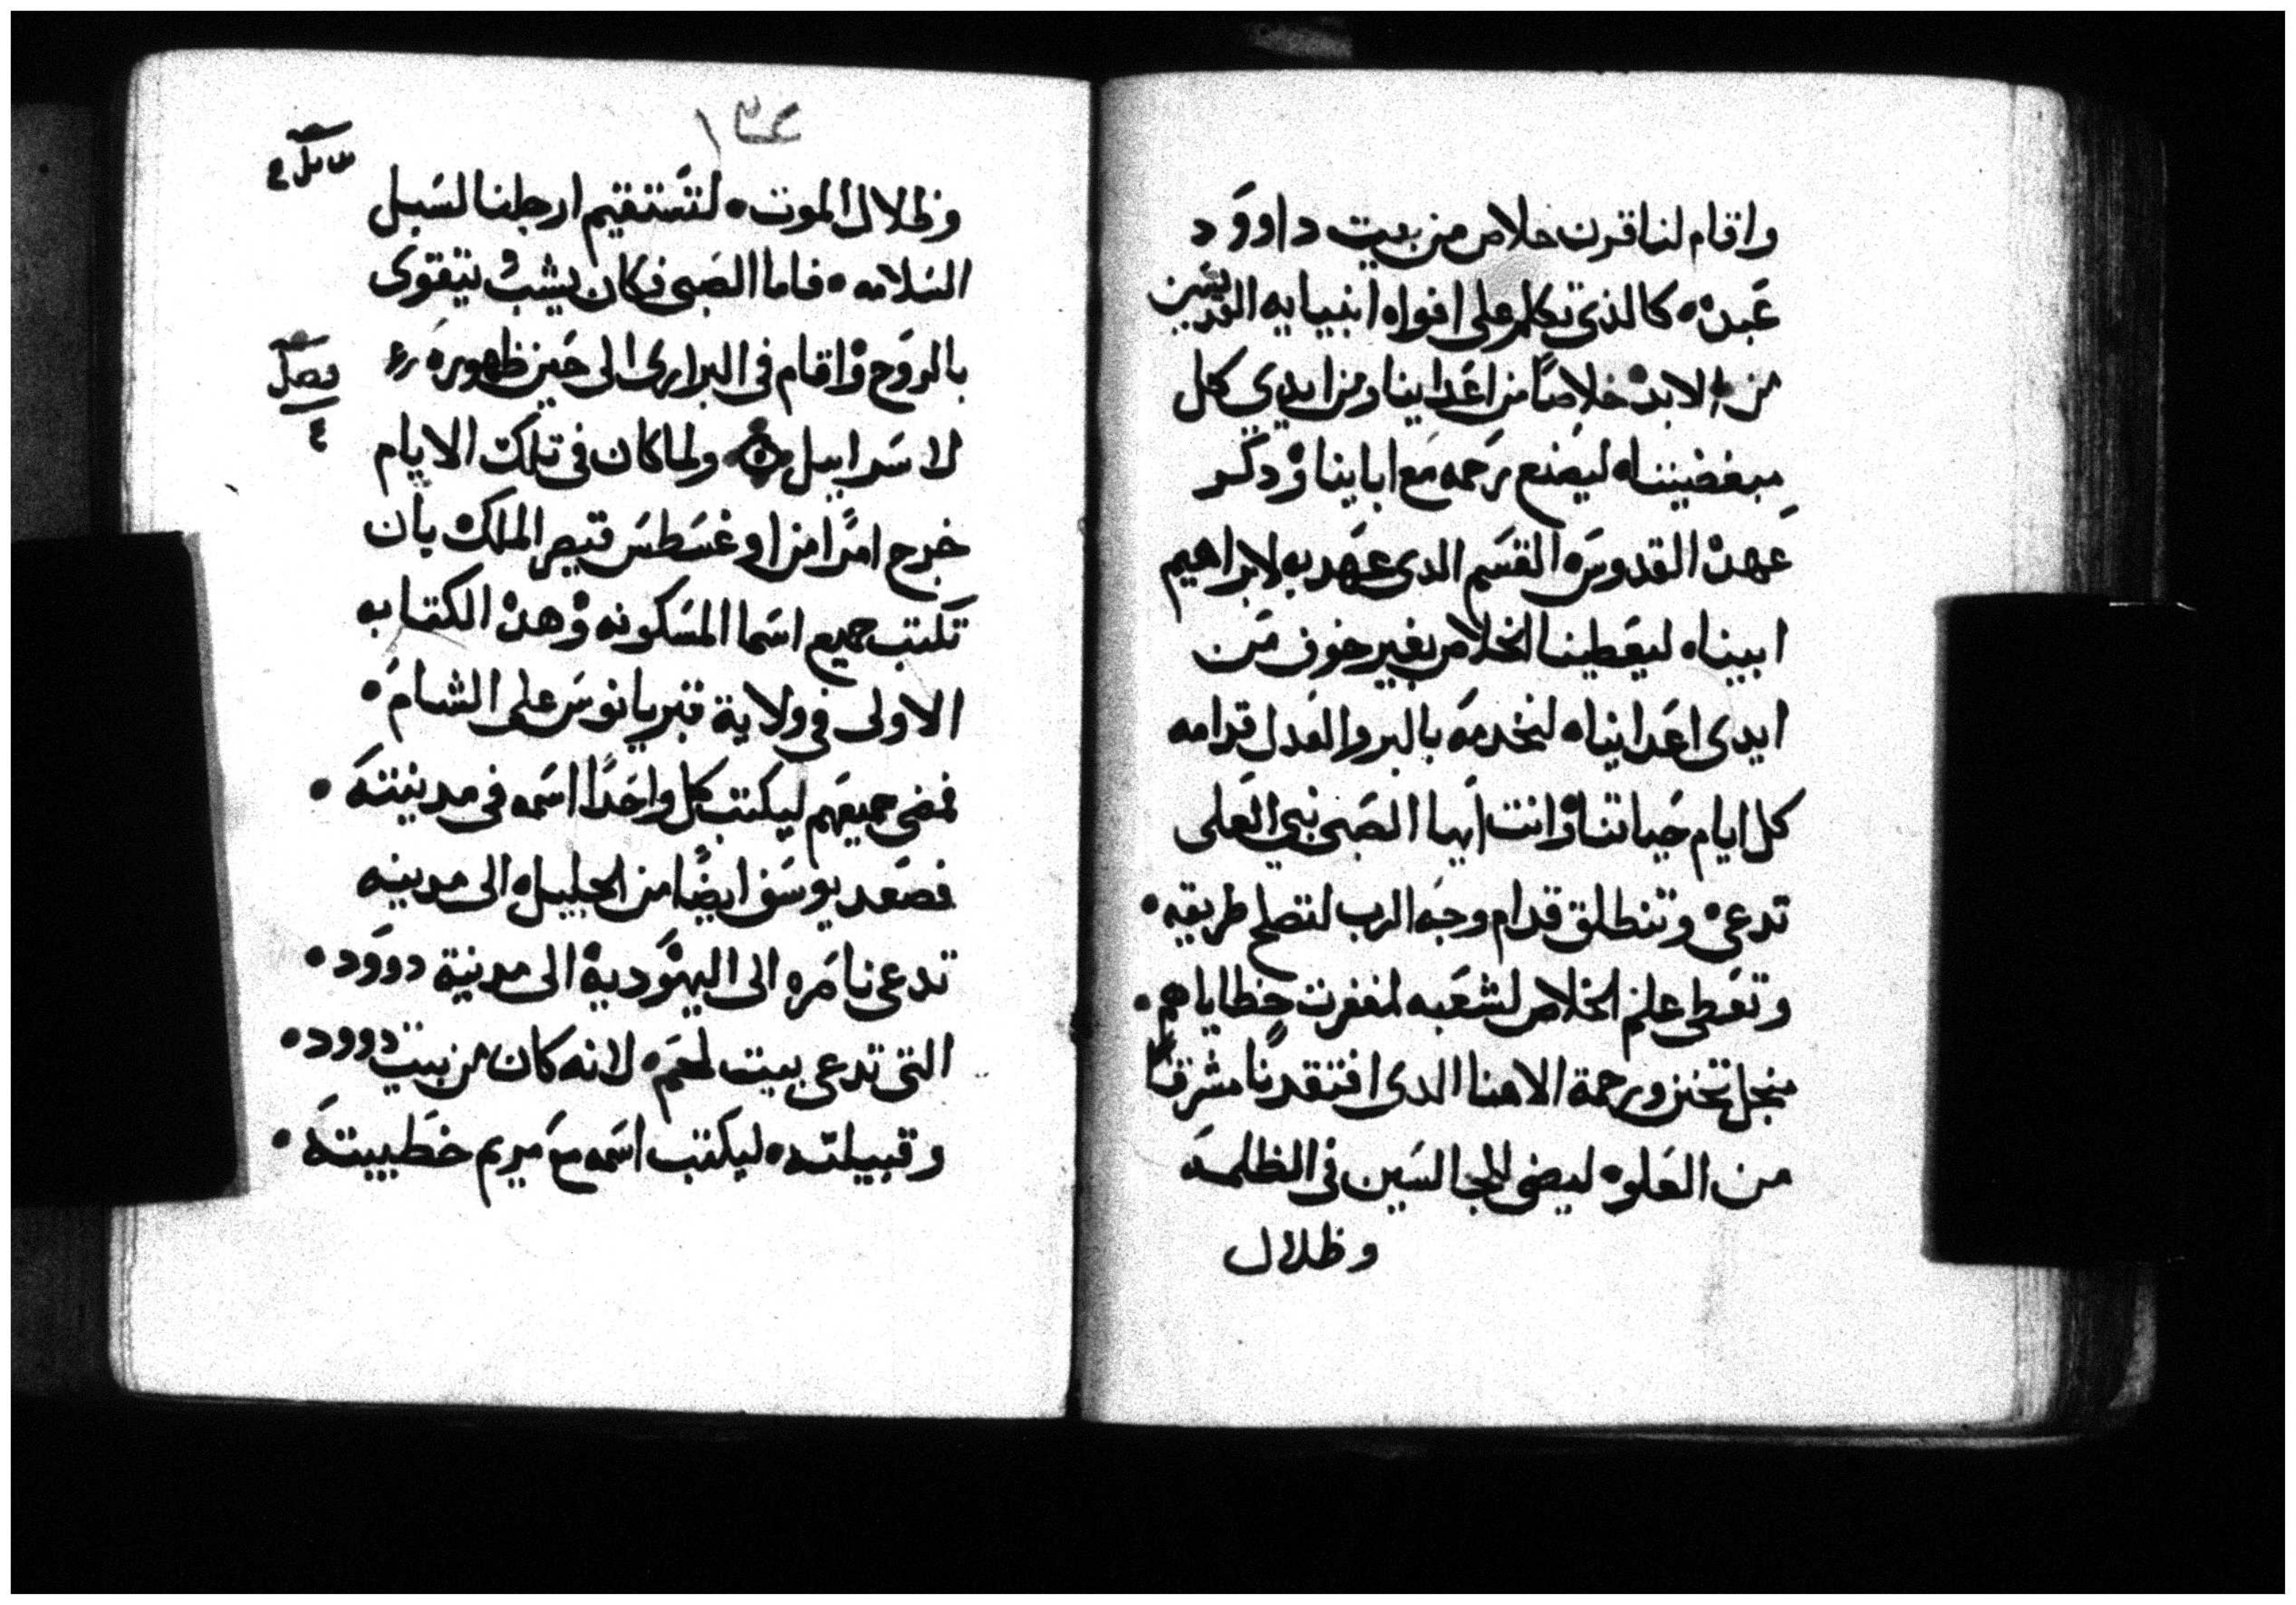 واقام لنا قرن خلاص من بيت داوود
عبده كالذي تكلم على افواه انبيايه القديسين
من الابد خلاصًا من اعداينا ومن ايدي كل
مبغضيننا ليصنع رحمه مع اباينا وذكر
عهده القدوس القسم الدى عهد به لابراهيم
ابينا ليعطينا الخلاص بغير خوف من
ايدى اعداينا لنخدمه بالبر والعدل قدامه
كل ايام حياتنا وانت ايها الصبى نبي العلى
تدعى وتنطلق قدام وجه الرب لتصلح طريقه
وتعطى علم الخلاص لشعبه لمغفرت خطاياهم
منجل تحنن ورحمة الاهنا الدى افتقدنا مشرقًا
من العلو ليضى للجالسين فى الظلمه
وظلال
١٣٤
وظلال الموت لتستقيم ارجلنا لسبل
السلامه فاما الصبى فكان يشب ويتقوى
بالروح واقام فى البرارى الى حين ظهوره
لاسراييل ولما كان فى تلك الايام
خرج امرًا من اوغسطس قيصر الملك بان
تكتب جميع اسما المسكونه وهده الكتابه
الاولى في ولاية قيريانوس على الشام
فمضى جميعهم ليكتب كل واحدًا اسمه فى مدينته
فصعد يوسف ايضًا من الجليل الى مدينه
تدعى ناصره الى اليهودية الى مدينة دوود
التى تدعى بيت لحم لانه كان من بيت دوود
وقبيلته ليكتب اسمه مع مريم خطيبته
فصل
٤